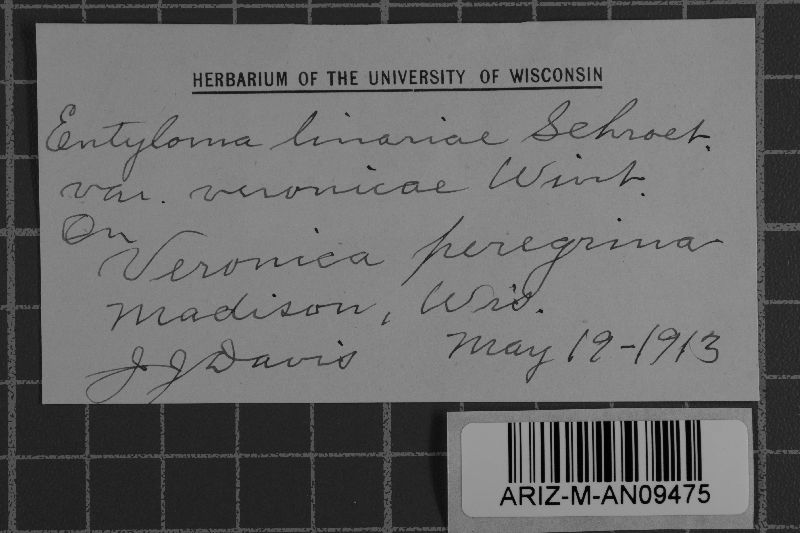 HERBARIUM OF THE UNIVERSITY OF WISCONSIN
Entyloma linariae Schroet.
var. veronicae Wint.
On
Veronica peregrina
Madison, Wis.
J J Davis May 19-1913
ARIZ-M-AN09475